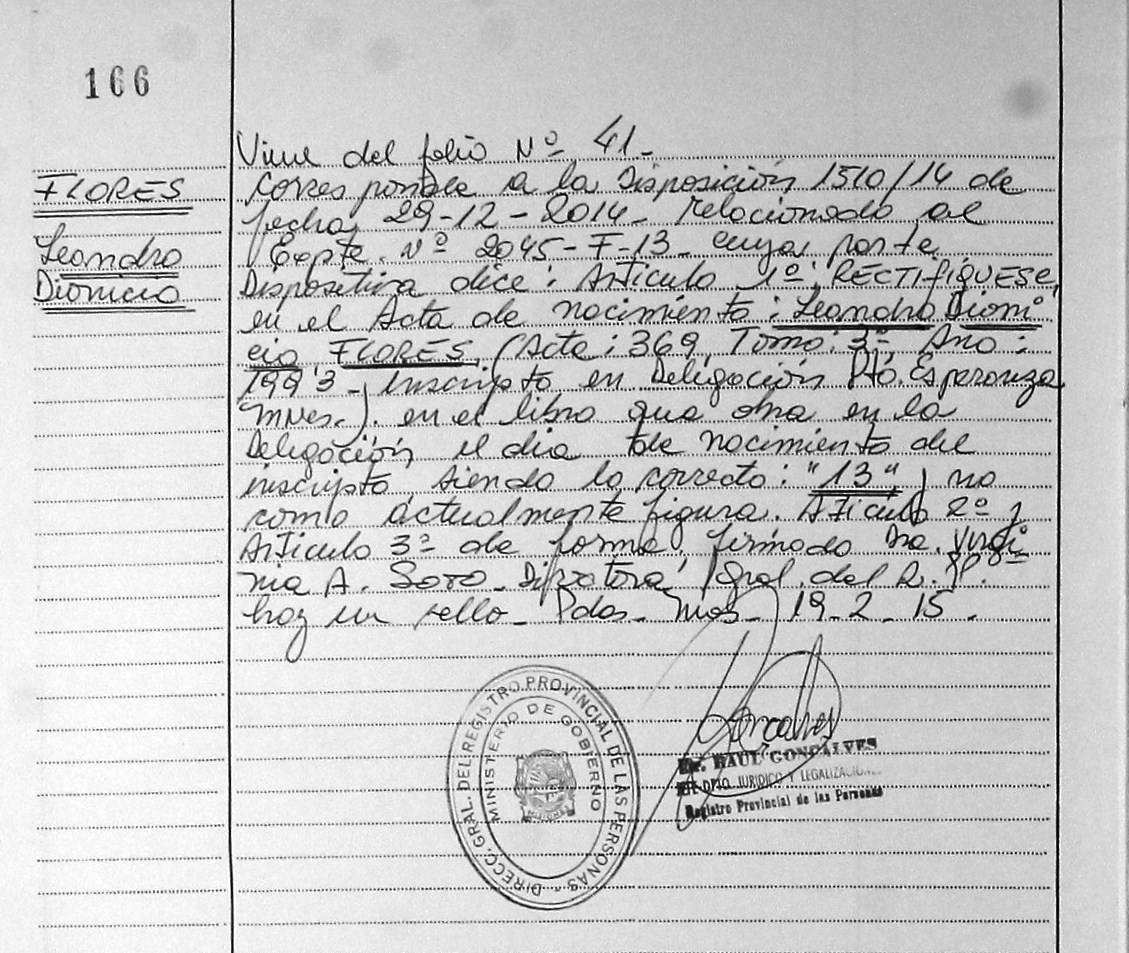 166
FLORES
Leandro
Dionicio
Viene del folio Nº 41.-
Corresponde a la Disposición 1510/14 de
fecha 29-12-2014- Relacionado al
Expte. Nº 2045-F-13- cuya parte
Dispositiva dice: Artículo 1º, RECTIFIQUESE,
en el Acta de nacimiento: Leandro Dioni
cio FLORES, (Acta: 369, Tomo: 3º Año:
1993- Inscripto en Delegación Pto. Esperanza
Mnes.). en el libro que obra en la
Delegación el dia de nacimiento del
inscripto siendo lo correcto: "13", y no
como actualmente figura. Articulo 2º y
Articulo 3º de forma. firmado Dra. Virgi
nia A. Soto. Directora Gral. del R.P.P.
hay un sello- Pdas- Mnes- 19-2-15.
DIRECC. GRAL. DEL REGISTRO PROVINCIAL DE LAS PERSONAS
MINISTERIO DE GOBIERNO
MISIONES
Goncalves
Dr. RAUL GONCALVES
DPTO JURIDICO Y LEGALIZACIONES
Registro Provincial de las Personas